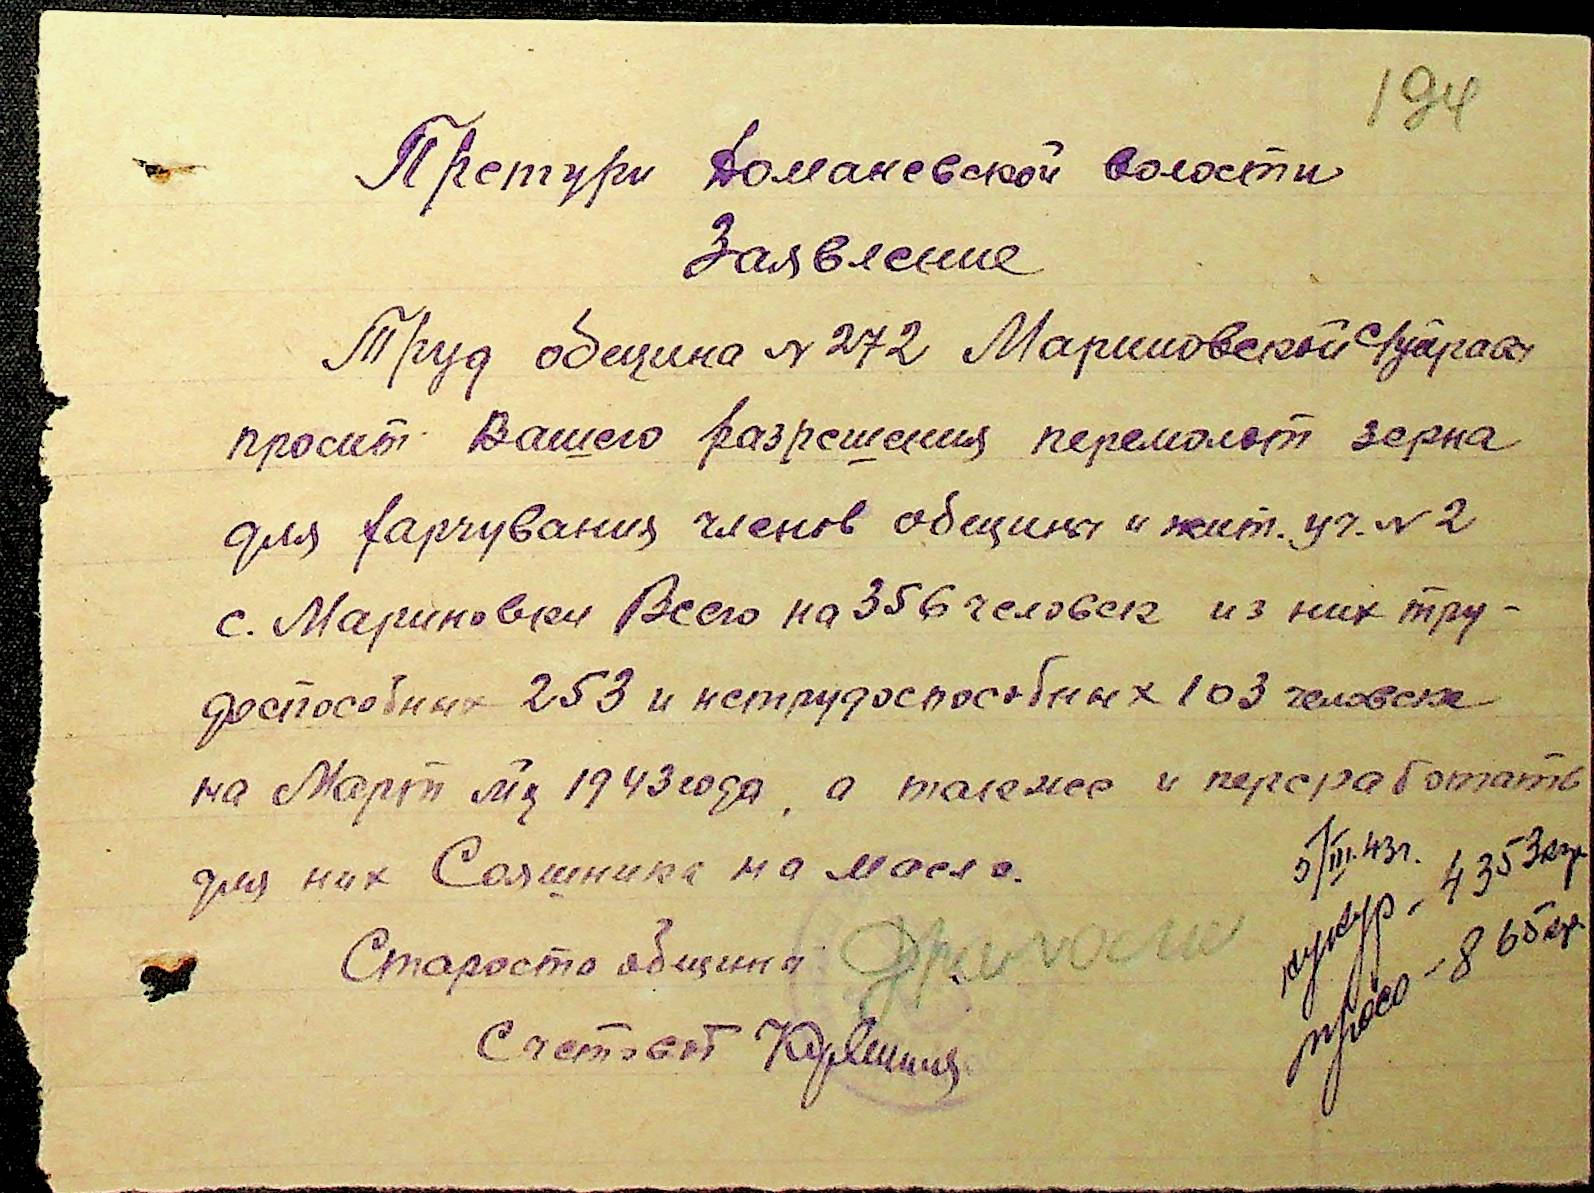 194
Претури Доманевской волости
Заявление
Труд община N 272 Мариновской с/управы
просит Вашего разрешения перемолот зерна
для харчувания членов общины и жит. уч. N 2
с. Мариновки Всего на 356 человек из них тру-
доспособных 253 и нетрудоспособных 103 человека
на Март м-ц 1943 года, а также и переработать
для них Сояшника на масло.
5/III.43г.
кукур - 4353кгр
просо - 865кгр.
Староста общины
Счетовот